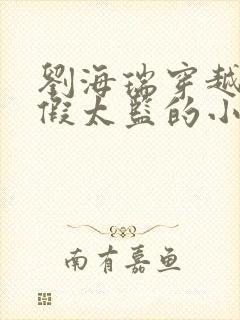 劉海瑞穿越
假太監的小
南有嘉鱼